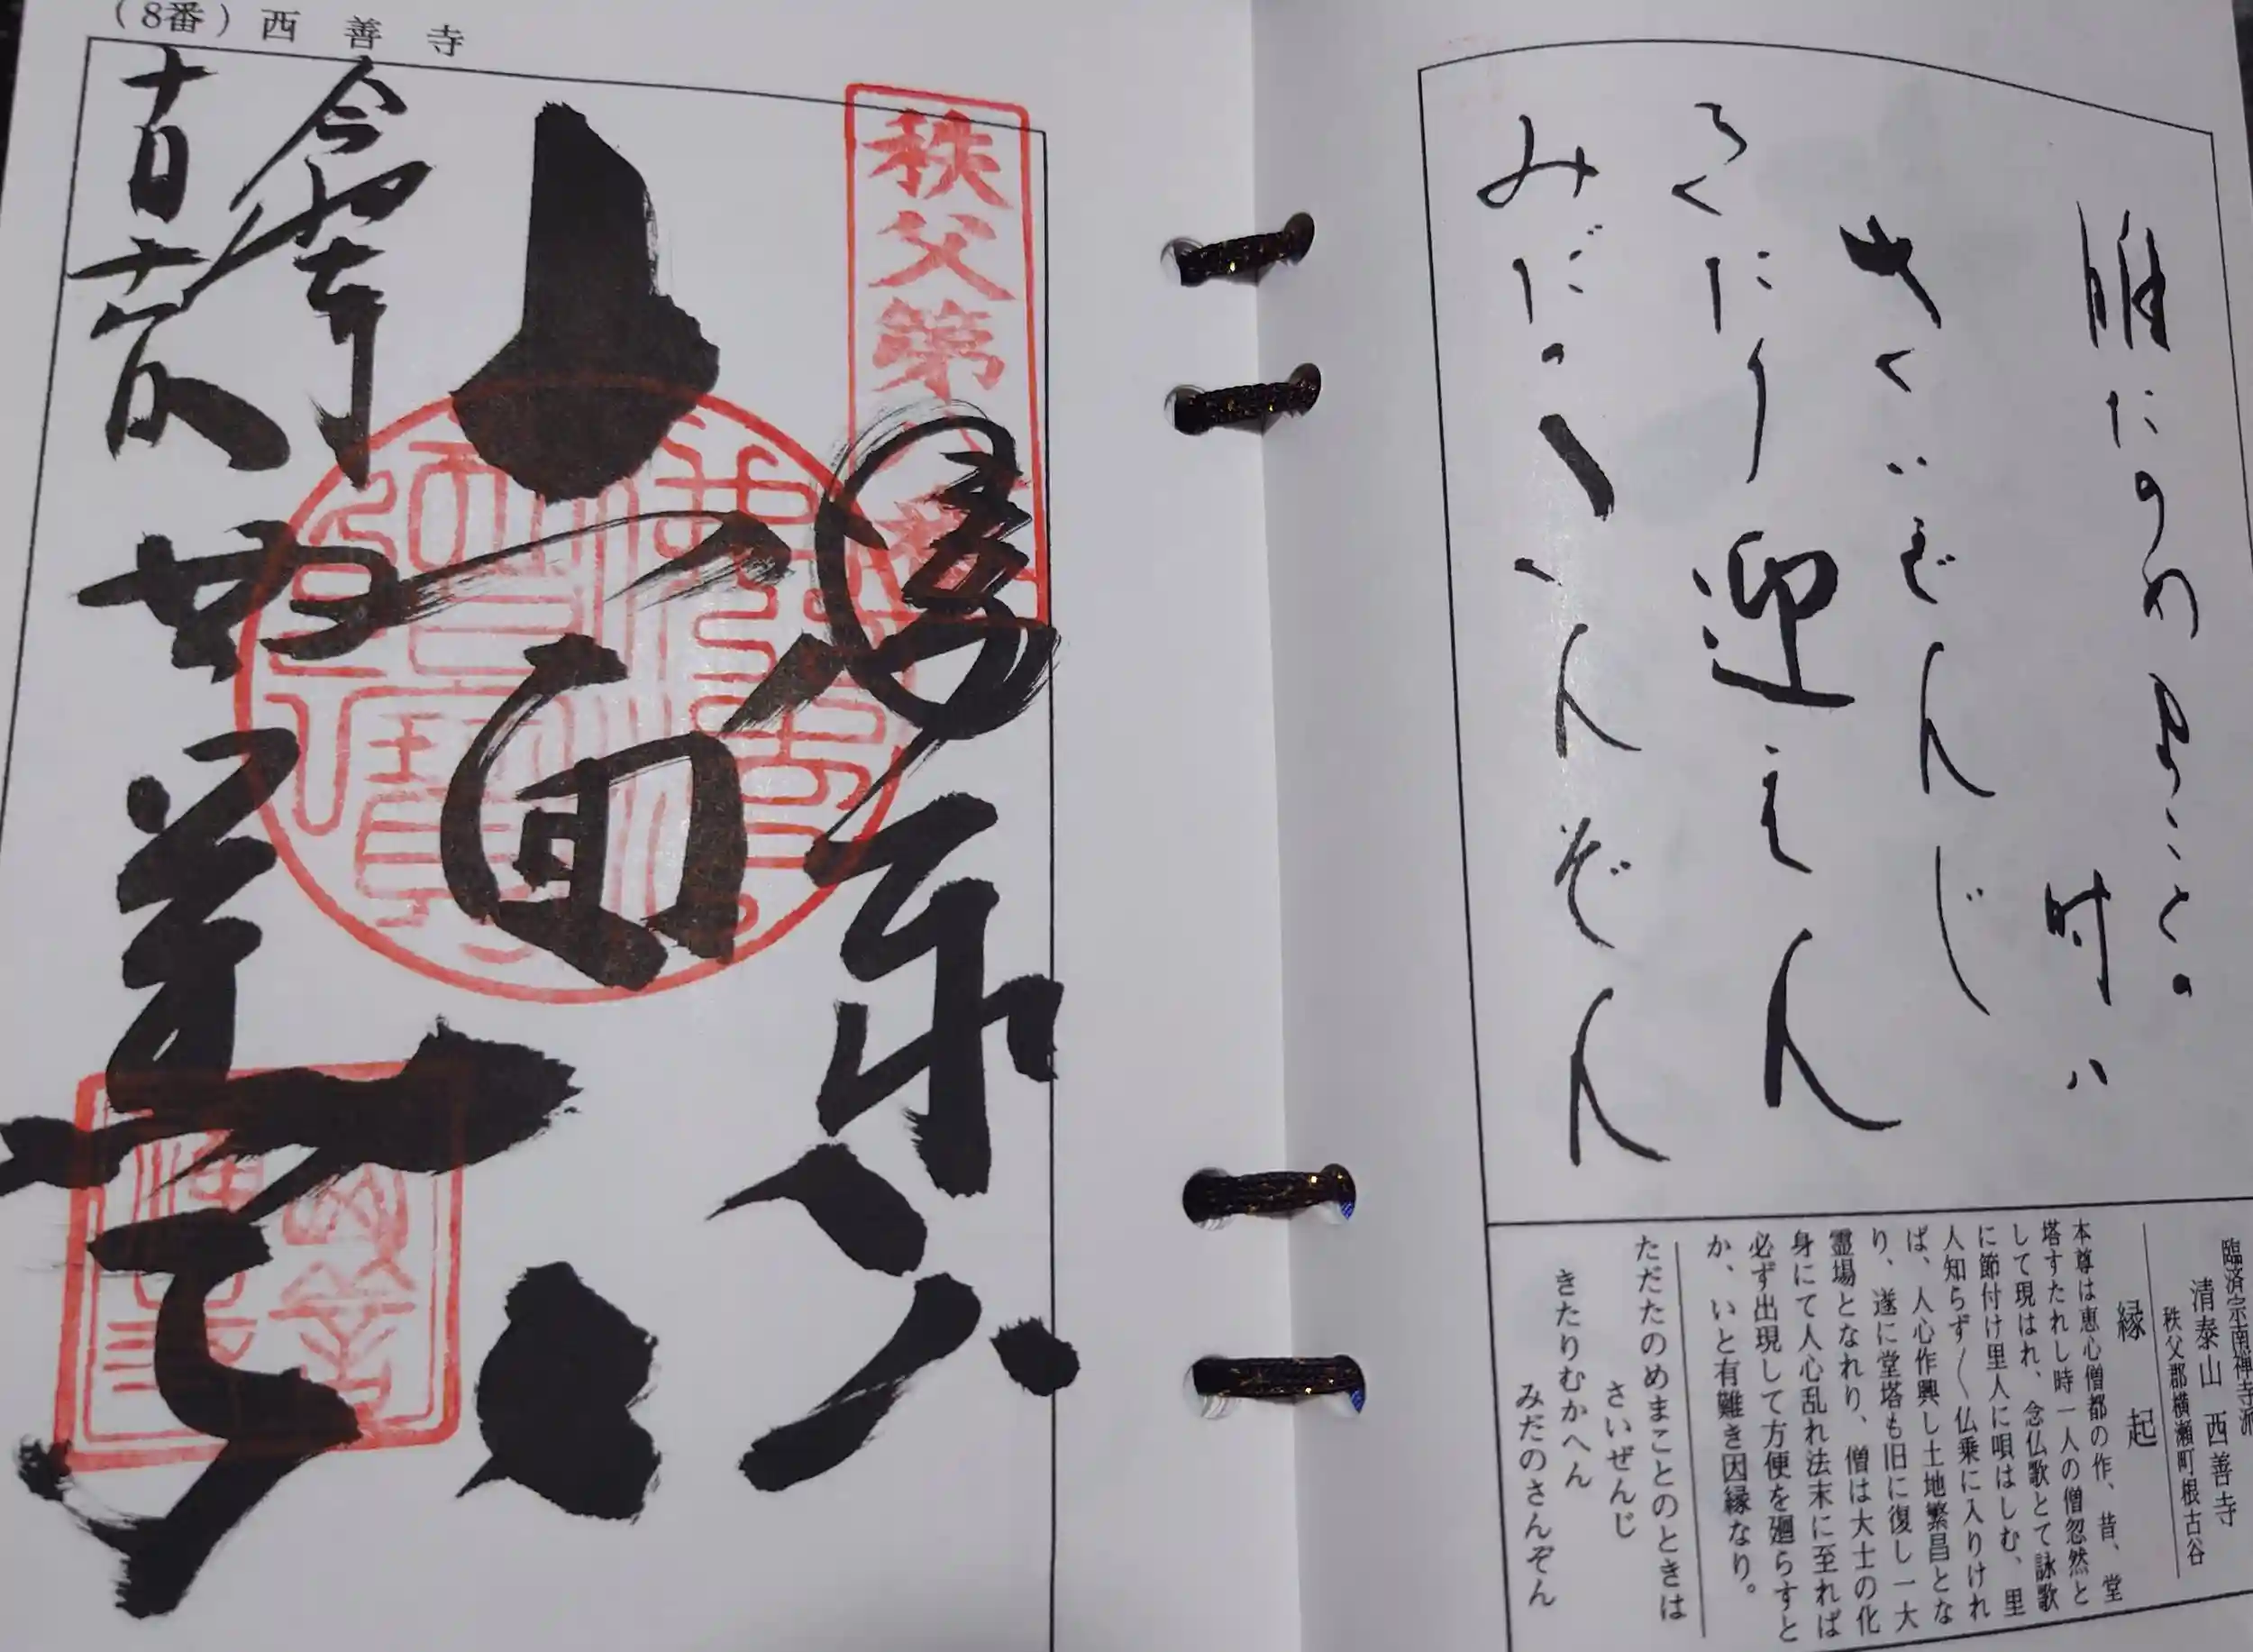 唯たのめまことの
時ハ
さいぜんじ
きたり迎えん
みだのさんぞん
臨済宗南禅寺派
清泰山 西善寺
秩父郡横瀬町根古谷
縁起
本尊は恵心僧都の作、昔、堂
塔すたれし時一人の僧忽然と
して現はれ、念仏歌とて詠歌
に節付け里人に唄はしむ、里
人知らず〱仏乗に入りけれ
ば、人心作興し土地繁昌とな
り、遂に堂塔も旧に復し一大
霊場となれり、僧は大士の化
身にて人心乱れ法末に至れば
必ず出現して方便を廻らすと
か、いと有難き因縁なり。
ただたのめまことのときは
さいぜんじ
きたりむかへん
みだのさんぞん
（8番）西善寺
秩父第
面
令和